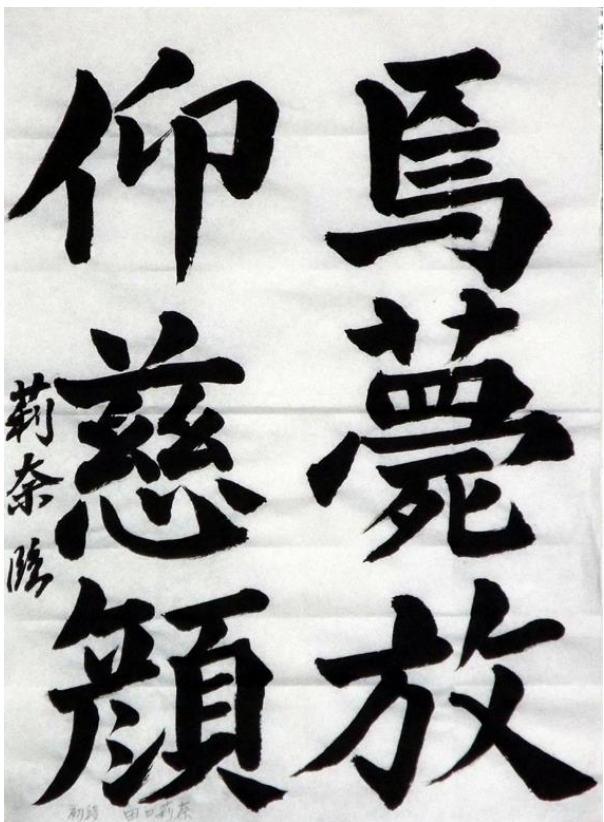 焉薨放
仰慈顔
莉奈臨
初段 田口莉奈